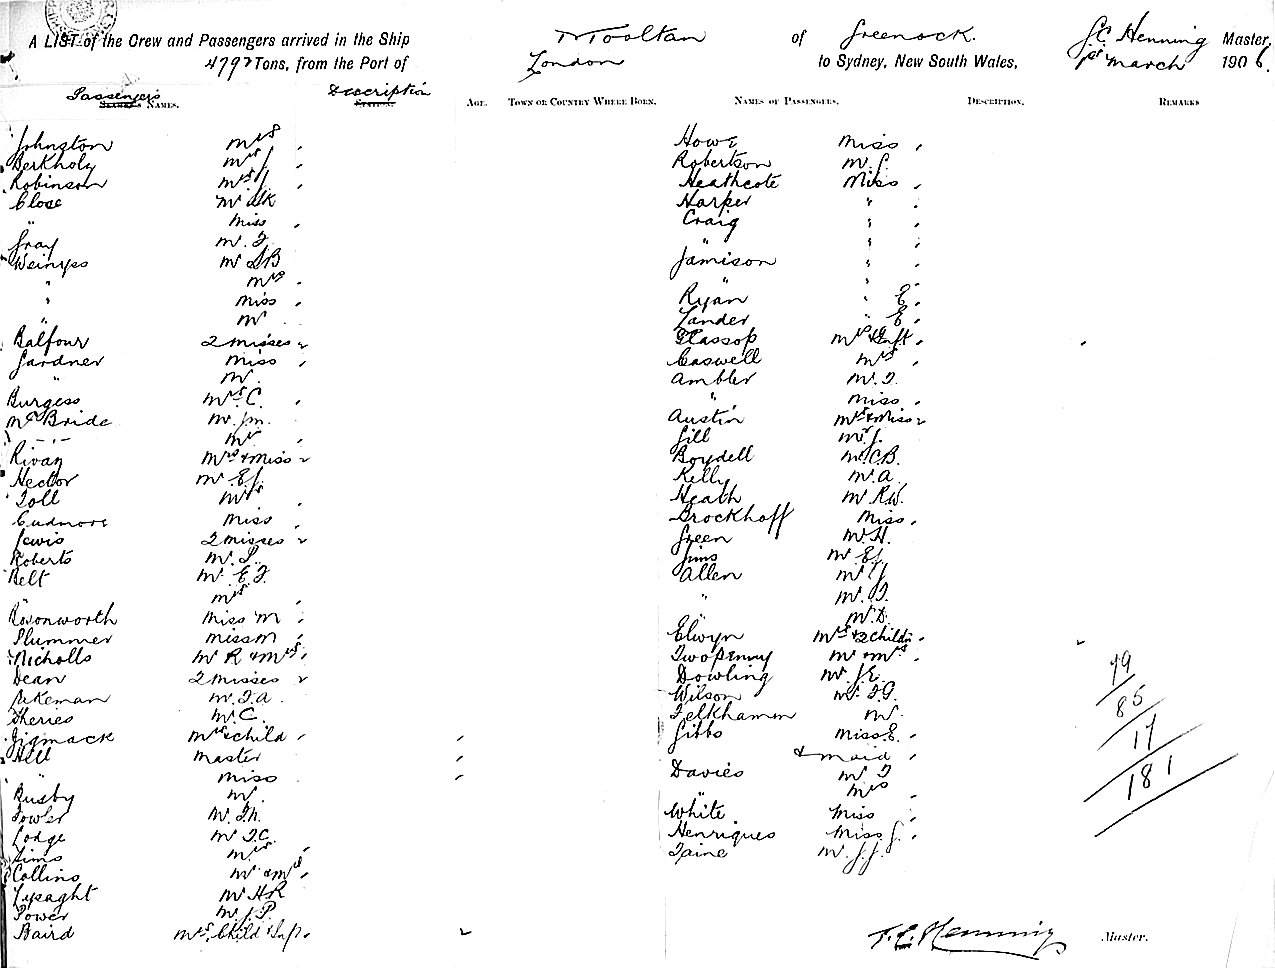 A LIST of the Crew and Passengers arrived in the Ship Mooltan of Greenock. Henning Master,
4797 Tons, from the Port of London to Sydney, New South Wales, 1st March 1906.
Passengers Description
NAMES. STATION. AGE. TOWN OR COUNTRY WHERE BORN. NAMES OF PASSENGERS. DESCRIPTION. REMARKS
Johnston Mrs
Berkholy Mr J
Robinson Mrs J.
Close Mr
" Miss
Gray Mr. F.
Weinyss Mr
" Mrs
" Miss
" Mr
Balfour 2 Misses
Gardner Miss
" Mr.
Burgess Mrs C.
McBride Mr. Jm.
" Mr
Rivay Mrs & Miss
Hector Mr. E J.
Toll Mrs
Cudmore Miss
Lewis 2 Misses
Roberts Mr.
Belt Mr. E F.
" Mrs
Miss M
Plummer Miss M
Nicholls Mr R & Mrs
Dean 2 Misses
Akeman Mr. F. A.
Mr. C.
Mrs & child
Hill Master
" Miss
Busby Mr.
Fowler Mr.
Lodge Mr F.C.
Sims Mrs
Collins Mr & Mrs
Lysaght Mr H R
Power Mr. J. P.
Baird Mrs, Child & Inf.
Howe Miss
Robertson Mr. J.
Heathcote Miss
Harper "
Craig "
" "
Jamison "
" "
Ryan " E.
Lander " E.
Glassop Mrs & Inft.
Caswell Mrs
Ambler Mr. F.
" Miss
Austin Mrs & Miss
Gill Mr J.
Boydell Mr C.B.
Kelly Mr A.
Heath Mr R.W.
Brockhoff Miss
Green Mr H.
Sims Mr E J.
Allen Mr J
" Mr. F.
Mr. D.
Elwyn Mrs & 2 childn.
Twopenny Mr & Mrs
Dowling Mr. J E.
Wilson Mr. F G.
Felkhamen Mr.
Gibbs Miss E.
& maid
Davies Mr F
" Mrs
White Miss
Henriques Miss J.
Taine Mr. J. J.
79
85
17
181
Henning Master.